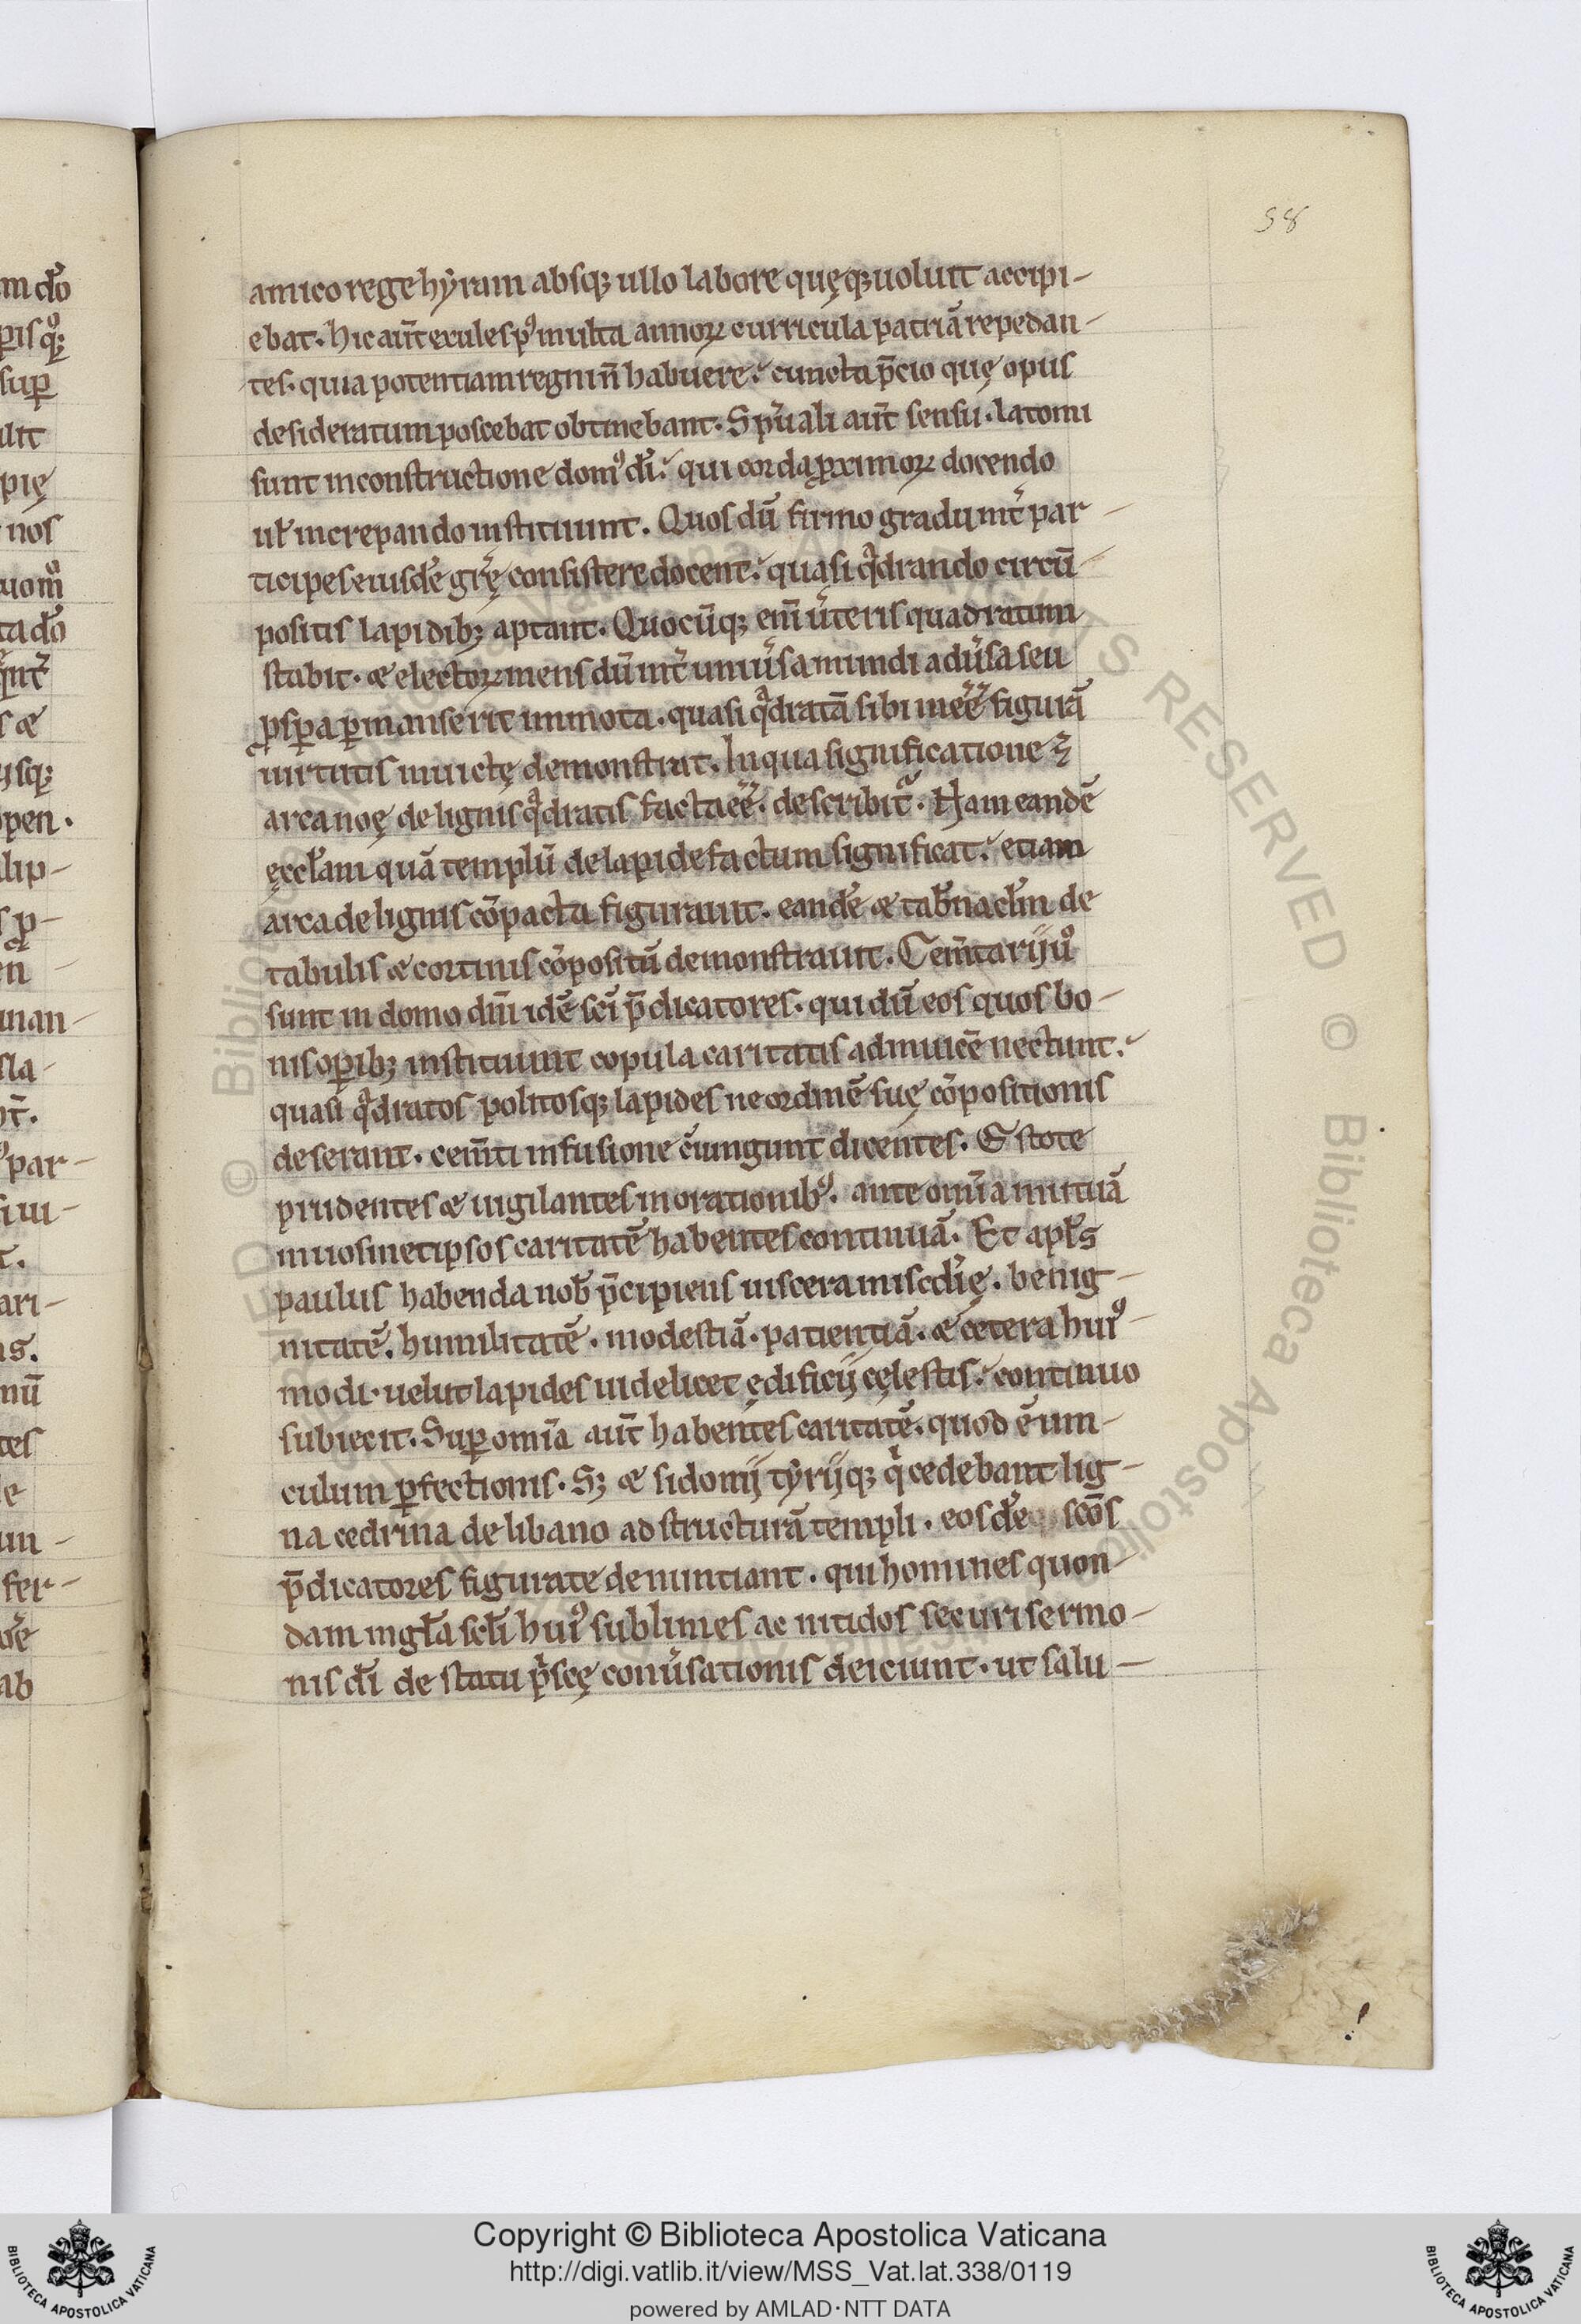 58
amico rege hyram absq; ullo labore quęq; uoluit accipi-
ebat. hic aut̄ exules pꝰ multa annoꝝ curricula patriā repedan-
tes. quia potentiam regni n̄ habuere. cuncta p̄cio quę opus
desideratum poscebat obtinebant. Spūali aut̄ sensu. latomi
sunt in constructione domꝰ dī. qui corda ꝓximoꝝ docendo
uł increpando instituunt. Quos dū firmo gradu int̄ par-
ticipes eiusdē grę̄ consistere docent. quasi qͣdrando circū-
positis lapidib; aptant. Quocūq; enī ūteris quadratum
stabit. & electoꝝ mens dū int̄ uniūsa mundi adūsa seu
ꝓspa ꝑmanserit immota. quasi qͣdratā sibi inēē figurā
uirtutis inuictę demonstrat. In qua significatione ⁊
arca noę de lignis qͣdratis facta ēē. describit᷑. Nam eandē
ęccłam quā templū de lapide factum significat. etiam
arca de lignis cōpacta figurauit. eandē & tab̄nacłm de
tabulis & cortinis cōpositū demonstrauit. Cem̄tarij uͦ
sunt in domo dn̄i idē sc̄i p̄dicatores. qui dū eos quos bo-
nis oꝑib; instituunt copula caritatis adinuicē nectunt.
quasi qͣdratos politosq; lapides ne ordinē suę cōpositionis
deserant. cem̄ti infusione c̄iungunt dicentes. Estote
prudentes & uigilantes in orationibꝰ. ante omīa mutuā
in uosmetipsos caritatē habentes continuā. Et apłs
paulus habenda nob̄ p̄cipiens uiscera miscdīę. benig-
nitatē. humilitatē. modestiā. patientiā. & cetera huiꝰ-
modi. uelut lapides uidelicet ędificij cęlestis. continuo
subiecit. Suꝑ omīa aut̄ habentes caritatē. quod ē uin-
culum ꝑfectionis. S; & sidonij tyrijq; qͥ cedebant lig-
na cedrina de libano ad structurā templi. eosdē scōs
p̄dicatores figurate denuntiant. qui homines quon-
dam in gła scłi huiꝰ sublimes ac nitidos securi sermo-
nis dī de statu pͥscę conūsationis deiciunt. ut salu-
Copyright © Biblioteca Apostolica Vaticana
http://digi.vatlib.it/view/MSS_Vat.lat.338/0119
powered by AMLAD·NTT DATA